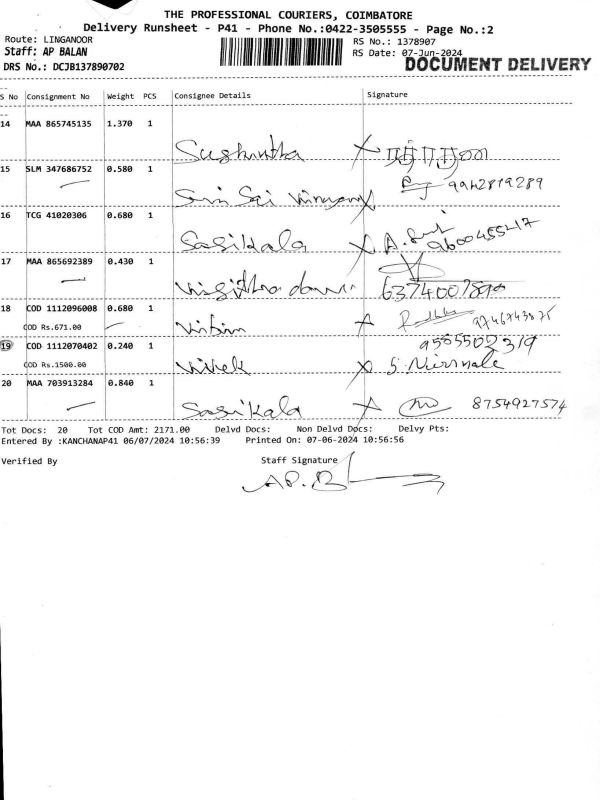 THE PROFESSIONAL COURIERS, COIMBATORE
Delivery Runsheet - P41 - Phone No.:0422-3505555 - Page No.:2
Route: LINGANOOR RS No.: 1378907
Staff: AP BALAN RS Date: 07-Jun-2024
DRS No.: DCJB137890702 DOCUMENT DELIVERY
S No Consignment No Weight PCS Consignee Details Signature
14 MAA 865745135 1.370 1
Sughuntha X
15 SLM 347686752 0.580 1
Sri Sai X 9942819289
16 TCG 41020306 0.680 1
Sasikala X A. 9600455417
17 MAA 865692389 0.430 1
18 COD 1112096008 0.680 1
COD Rs.671.00
X
19 COD 1112070402 0.240 1 9585502319
COD Rs.1500.00
Vivek X S. Nirmala
20 MAA 703913284 0.840 1
Sasikala X 8754927574
Tot Docs: 20 Tot COD Amt: 2171.00 Delvd Docs: Non Delvd Docs: Delvy Pts:
Entered By :KANCHANAP41 06/07/2024 10:56:39 Printed On: 07-06-2024 10:56:56
Verified By Staff Signature
AP. B